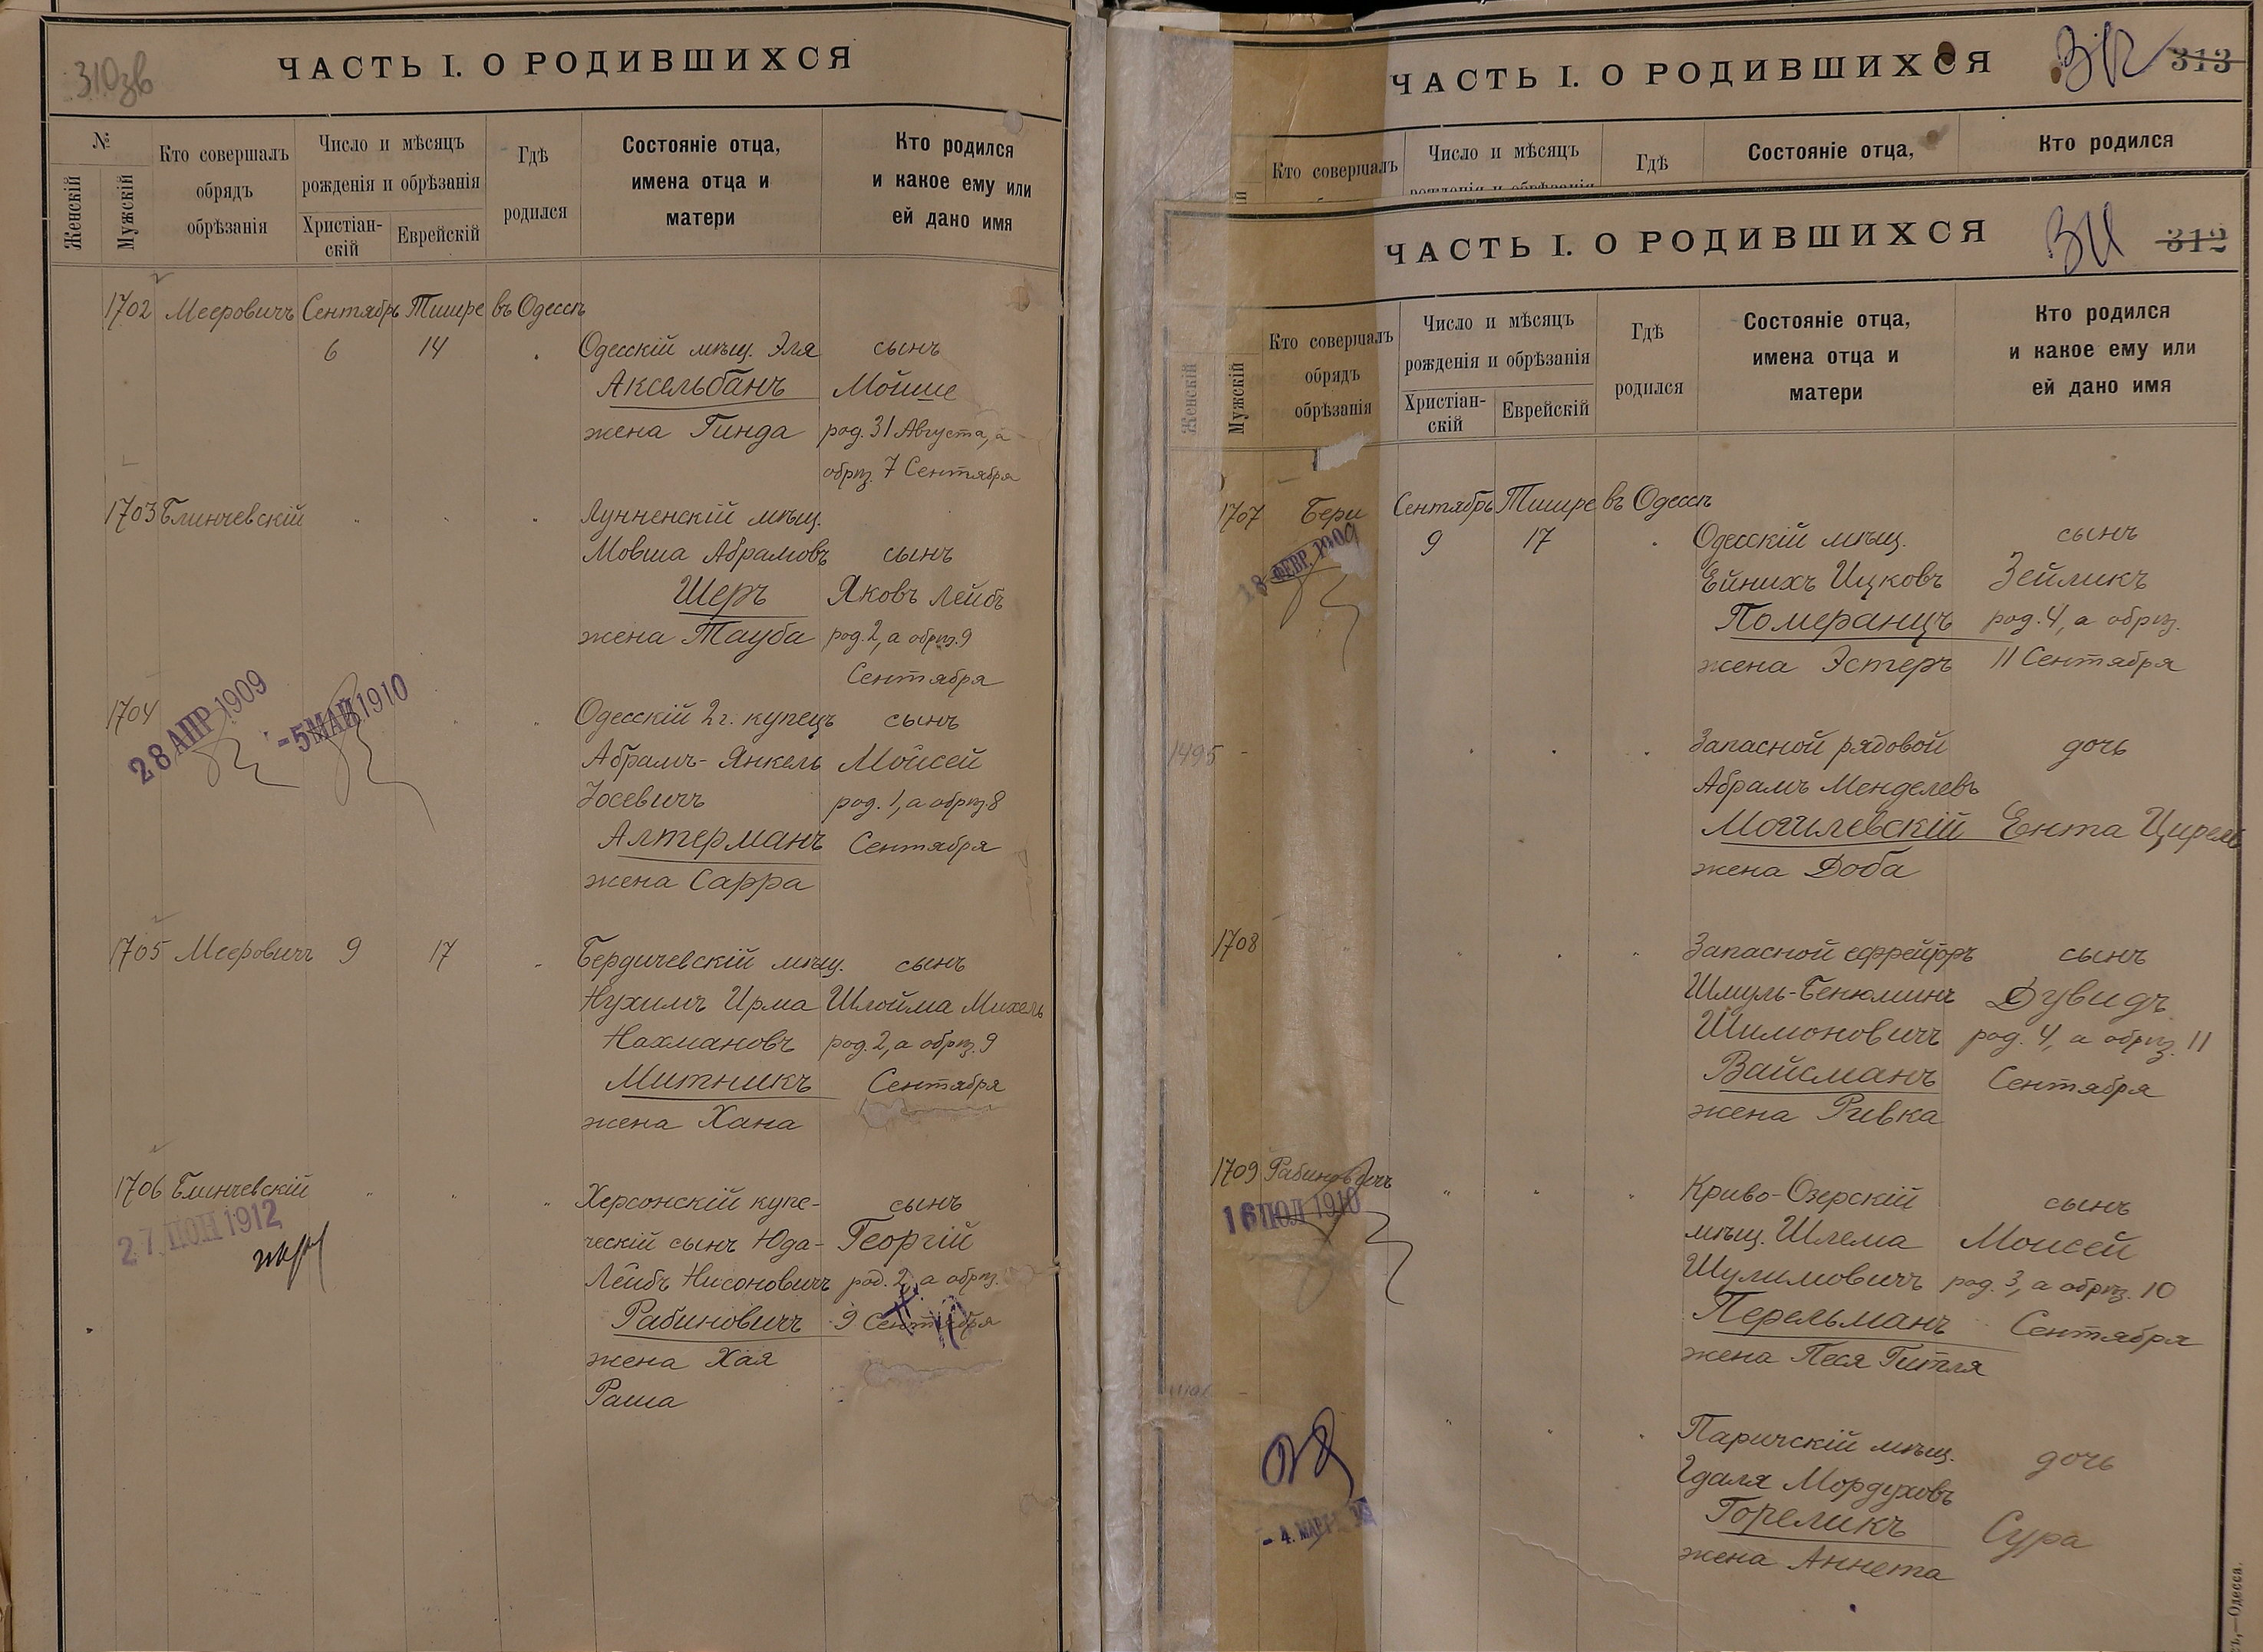 310зв
ЧАСТЬ I. О РОДИВШИХСЯ
№
Женскій
Мужскій
Кто совершалъ
обрядъ
обрѣзанія
Число и мѣсяцъ
рожденія и обрѣзанія
Христіан-
скій
Еврейскій
Гдѣ
родился
Состояніе отца,
имена отца и
матери
Кто родился
и какое ему или
ей дано имя
1702 Мееровичъ Сентябрь Тишре въ Одессѣ
6 14 Одесскій мѣщ. Эля сынъ
Аксельбанъ Мойше
жена Гинда род. 31 Августа, а
обрѣз. 7 Сентября
1703 Блинчевскій " " " Лунненскій мѣщ.
Мовша Абрамовъ сынъ
Шеръ Яковъ Лейбъ
жена Тауба род. 2, а обрѣз. 9
Сентября
1704 " " Одесскій 2 г. купецъ сынъ
28 АПР 1909 -5 МАЙ 1910
Абрамъ-Янкель Мойсей
Іосевичъ род. 1, а обрѣз. 8
Алтерманъ Сентября
жена Сарра
1705 Мееровичъ 9 17 " Бердичевскій мѣщ. сынъ
Нухимъ Ирма Шлойма Михель
Нахмановъ род. 2, а обрѣз. 9
Митникъ Сентября
жена Хана
1706 Блинчевскій " " " Херсонскій купе- сынъ
27 ІЮН 1912
ческій сынъ Юда- Георгій
Лейбъ Нисоновичъ род. 2, а обрѣз.
Рабиновичъ 9 Сентября
жена Хая
Раша
ЧАСТЬ I. О РОДИВШИХСЯ
312 313
Кто совершалъ
Число и мѣсяцъ
рожденія и обрѣзанія
Гдѣ
Состояніе отца,
Кто родился
ЧАСТЬ I. О РОДИВШИХСЯ
311 312
Женскій
Мужскій
Кто совершалъ
обрядъ
обрѣзанія
Число и мѣсяцъ
рожденія и обрѣзанія
Христіан-
скій
Еврейскій
Гдѣ
родился
Состояніе отца,
имена отца и
матери
Кто родился
и какое ему или
ей дано имя
1707 Бери Сентябрь Тишре въ Одессѣ
18 ФЕВР. 1909
9 17 " Одесскій мѣщ. сынъ
Ейнихъ Ицковъ Зейликъ
Померанцъ род. 4, а обрѣз.
жена Эстеръ 11 Сентября
1495 - " " " Запасной рядовой дочь
Абрамъ Менделевъ
Могилевскій Ента Цирель
жена Доба
1708 " " " " Запасной ефрейторъ сынъ
Шмуль-Бенюминъ Дувидъ
Шимоновичъ род. 4, а обрѣз. 11
Вайсманъ Сентября
жена Ривка
1709 Рабиновичъ " " " Криво-Озерскій сынъ
16 ІЮЛ 1910
мѣщ. Шлема Моисей
Шулимовичъ род. 3, а обрѣз. 10
Перельманъ Сентября
жена Песя Гитля
" " " Паричскій мѣщ. дочь
Гдаля Мордуховъ
Гореликъ Сура
- 4. МАРТ
жена Аннета
Одесса.